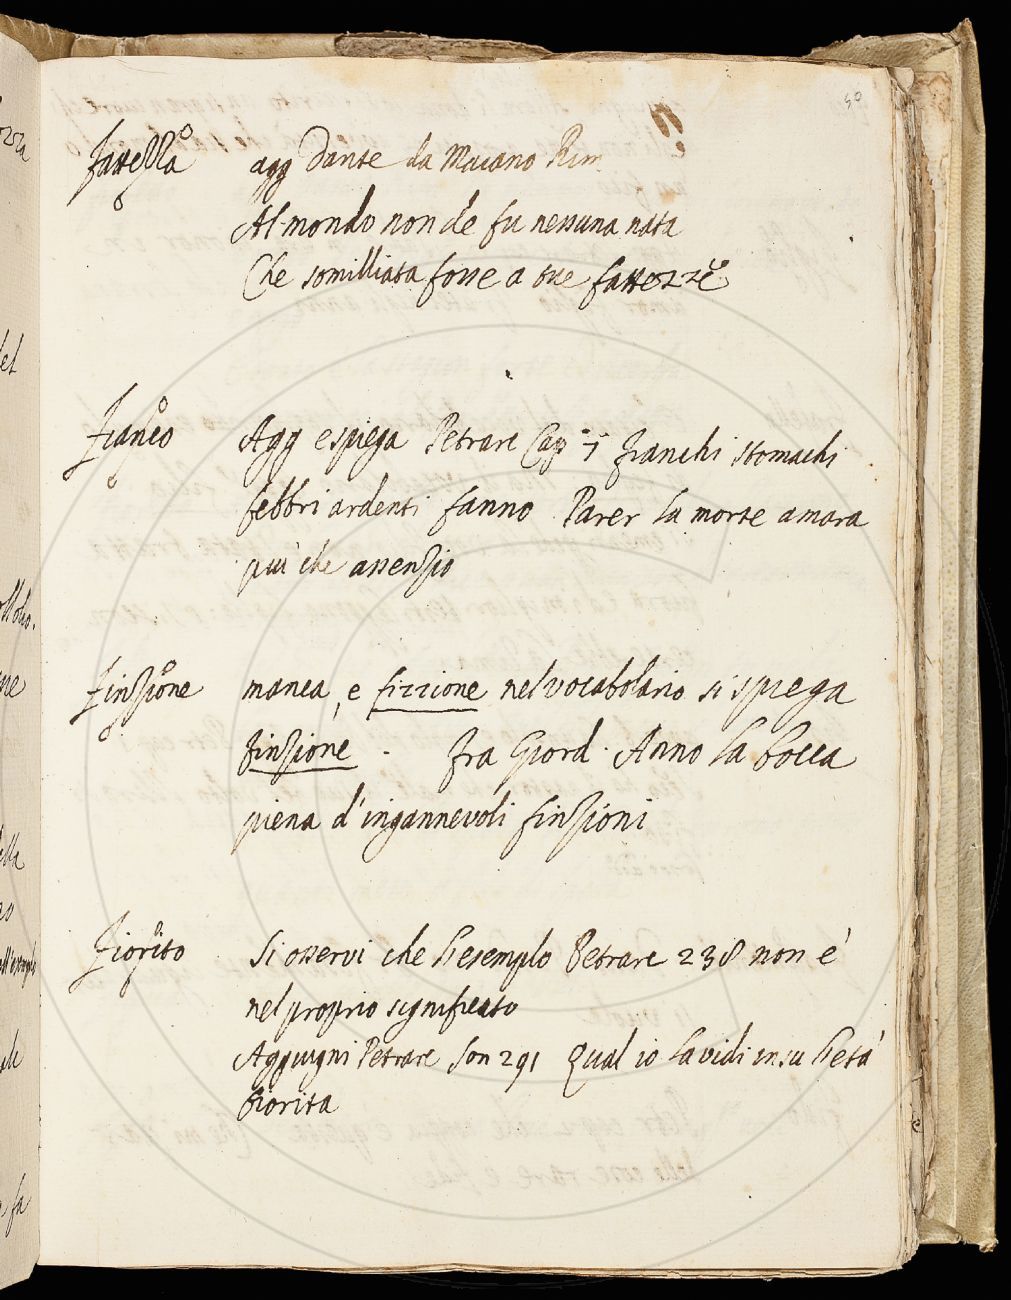 50
Fattezza agg Dante da Maiano Rim.
Al mondo non de fu nessuna nata
Che somilliata fosse a tue fattezze
Franco Agg e spiega Petrarc Cap 7 franchi stomachi
febbri ardenti fanno Parer la morte amara
piu che assenzio
Finzione manca, e fizzione nel vocabolario si spiega
finzione. Fra Giord. Anno la bocca
piena d'ingannevoli finzioni
Fiorito Si osservi che l'esemplo Petrarc 238 non è
nel proprio significato
Aggiugni Petrarc Son 291 Qual io la vidi in su l'età
fiorita